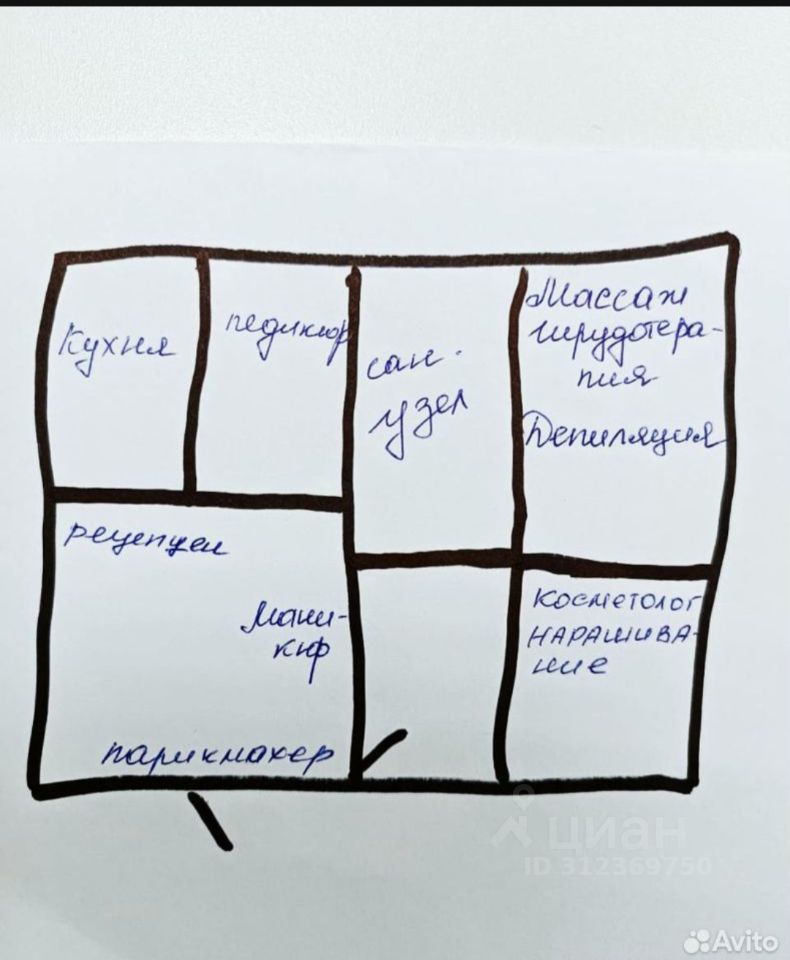 Кухня
педикюр
сан.
узел
Массаж
гирудотера-
пия
Депиляция
рецепцеи
Мани-
кюр
парикмахер
косметолог
НАРАШИВА-
ние
циан
ID 312369750
Avito